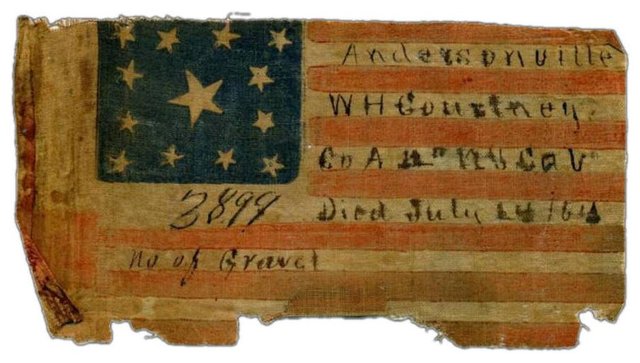 Andersonville
W H Courtney
Co A N Y Cav
3899 Died July 24 '64
No of Grave